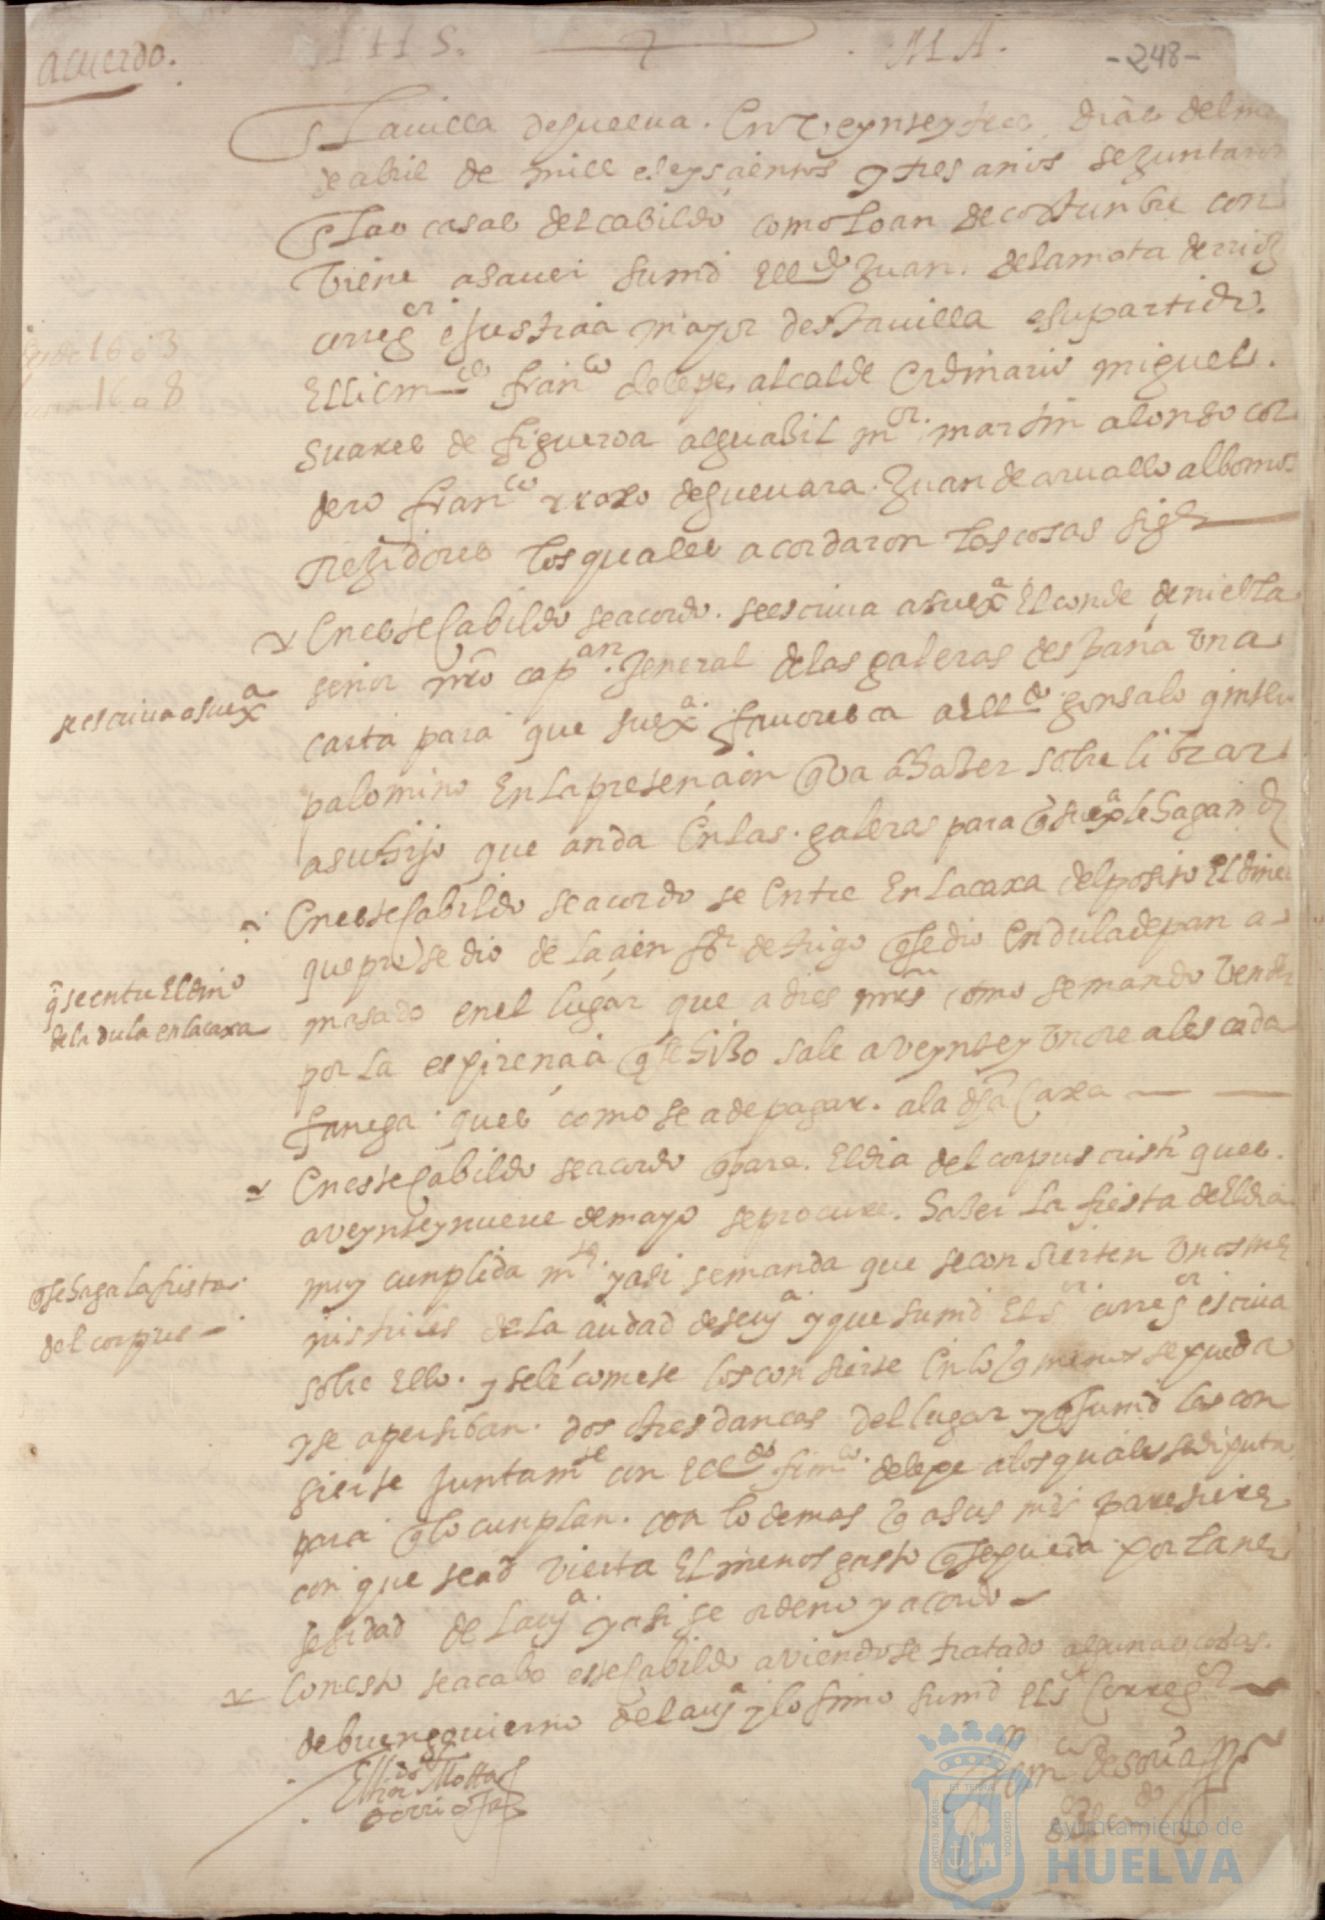 acuerdo.
IHS. MA.
-248-
En la uilla de guelua. En Veynte y tres dias del mes
de abril de mill e seysçientos y tres años se Juntaron
En las casas del cabildo como lo an de costunbre con
viene a sauer su md El ldo Juan. de la mota
correg or e Justiçia mayor desta uilla e su partido.
El licen do fran co de lepe, alcalde Ordinario miguel.
suares de figueroa alguasil m or. martin alonso cor
dero fran co rroxo de gueuara. Juan de aruallo albornos
Regidores los quales acordaron las cosas sig es
En este Cabildo se acordo. se escriua a su ex a El conde de niebla
señor nro cap an. Jeneral de las galeras despaña vna
carta para que su ex a. fauoresca al ldo gonsalo
palomino En la presençion q va a haser sobre librar
a su hijo que anda En las. galeras para q su ex a le hagan
En este Cabildo se acordo se Entre En la caxa del posito El dine
que prosedio de la de trigo q se dio En dula de pan a
masado en el lugar que a dies mrs como se mando vender
por la espirençia q se hizo sale a veynte y vn reales cada
fanega. ques como se a de pagar. a la dha Caxa
En este Cabildo se acordo q para. El dia del corpus cristi ques.
a veynte y nueue de mayo se procure. haser la fiesta de El dia
muy cunplida m te. y asi se manda que se consierten vnos me
nistriles de la çiudad de seu a y que su md El s or. correg or escriua
sobre Ello. y se le comete los consierte En lo q menos se pueda
y se aperciban. dos o tres danças del lugar y q su md las con
sierte Juntam te con El ldo fran co. de lepe a los quales se diputa
para q lo cunplan. con lo demas q a sus mds paresiere
con que se advierta El menos gasto q se pueda por la ne
sesidad de la uy a. y asi se ordeno y acordo
Con esto se acabo este Cabildo aviendose tratado algunas cosas.
de buen gouierno de la uy a y lo firmo su md El s r Correg or
se escriua a su ex a
q se entre El dino
de la dula en la caxa
q se haga la fiesta.
del corpus
desde 1603
1608
El ldo Motta
Ayuntamiento de
HUELVA
PORTUS MARIS ET TERRAE CUSTODIA